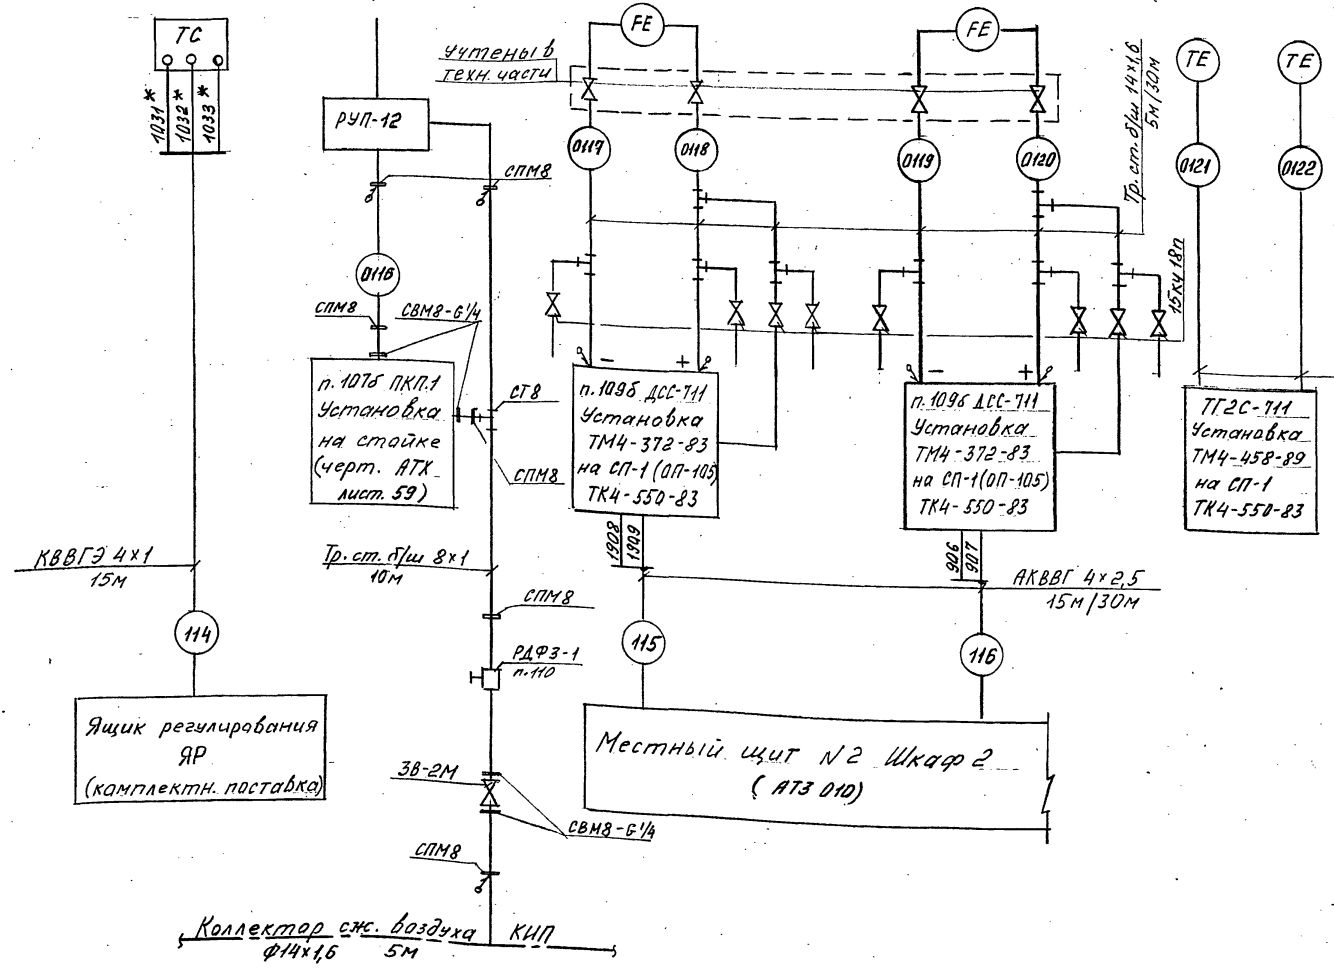 ТС
1031*
1032*
1033*
КВВГЭ 4×1
15м
114
Ящик регулирования
ЯР
(комплектн. поставка)
РУП-12
СПМ8
0116
СПМ8
СВМ8-G1/4
п.107б ПКП.1
Установка
на стойке
(черт. АТХ
лист. 59)
СТ8
СПМ8
Тр. ст. б/ш 8×1
10м
СПМ8
РДФЗ-1
п.110
ЗВ-2М
СВМ8-G1/4
СПМ8
Коллектор сж. воздуха КИП
Ф14×1,6 5м
Учтены в
техн. части
FE
FE
0117
0118
0119
0120
Тр. ст. б/ш 14×1,6
5м/30м
15кч 18п
− +
− +
п.109б ДСС-711
Установка
ТМ4-372-83
на СП-1 (ОП-105)
ТК4-550-83
п.109б ДСС-711
Установка
ТМ4-372-83
на СП-1 (ОП-105)
ТК4-550-83
1908
1909
906
907
АКВВГ 4×2,5
15м/30м
115
116
Местный щит N2 Шкаф 2
(АТЗ 010)
ТЕ
ТЕ
0121
0122
ТГ2С-711
Установка
ТМ4-458-89
на СП-1
ТК4-550-83